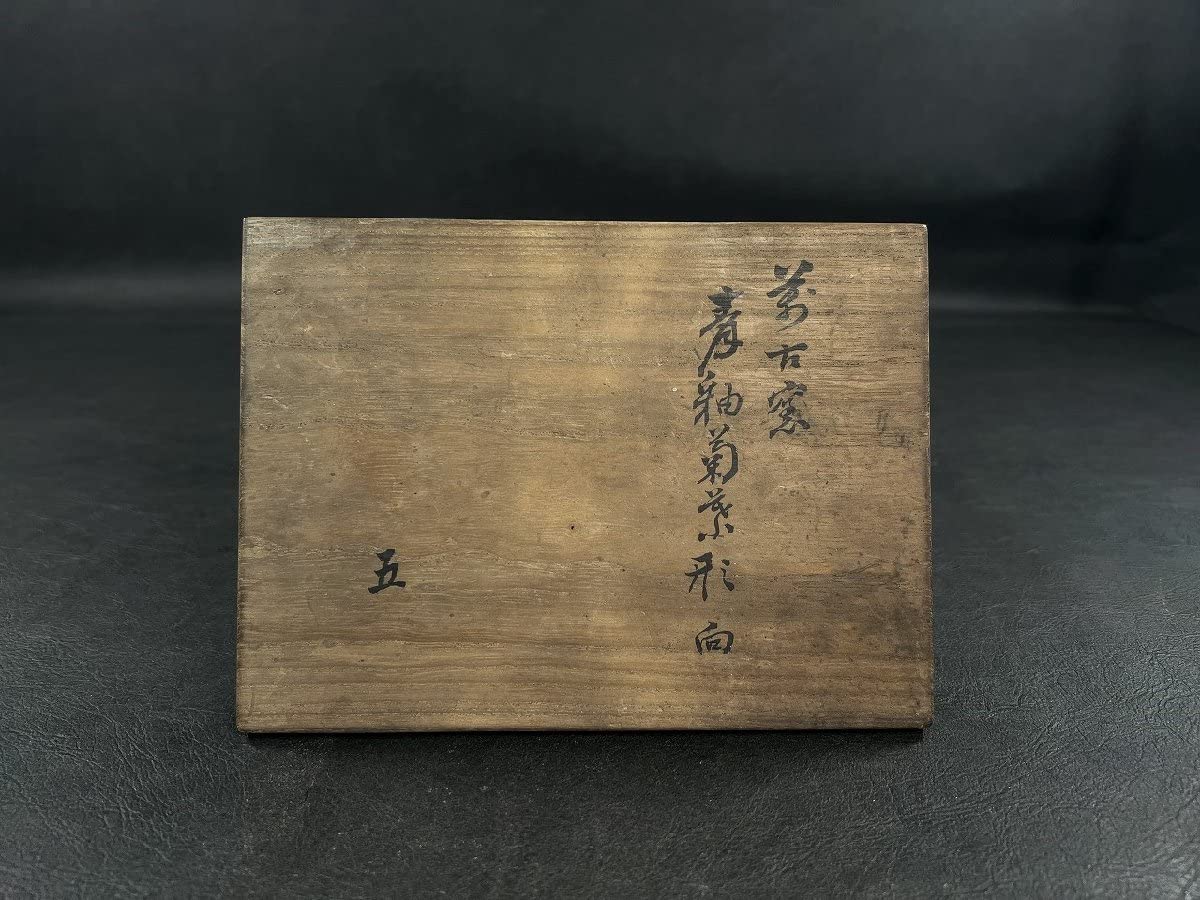 萬古窯
青釉菊葉形向
五